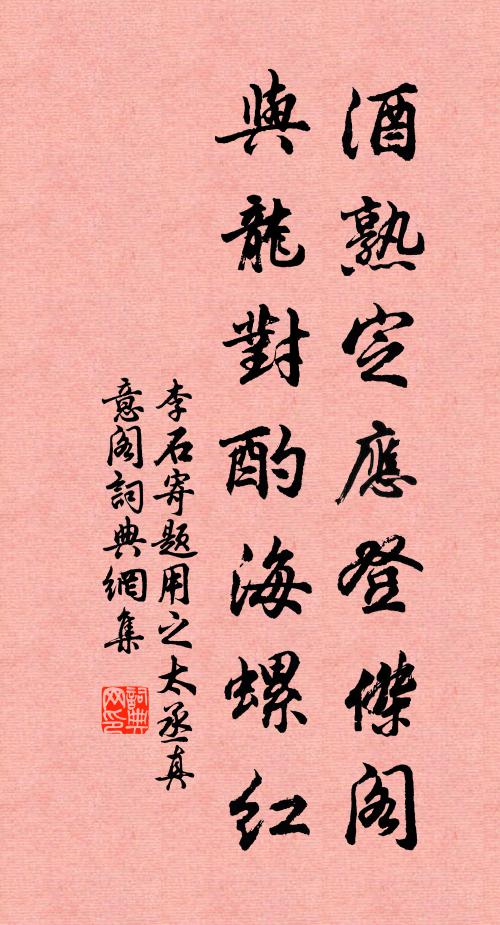 酒熟定應登傑閣
與龍對酌海螺紅
李石寄题用之太丞真
意阁詞典網集
詞典网印